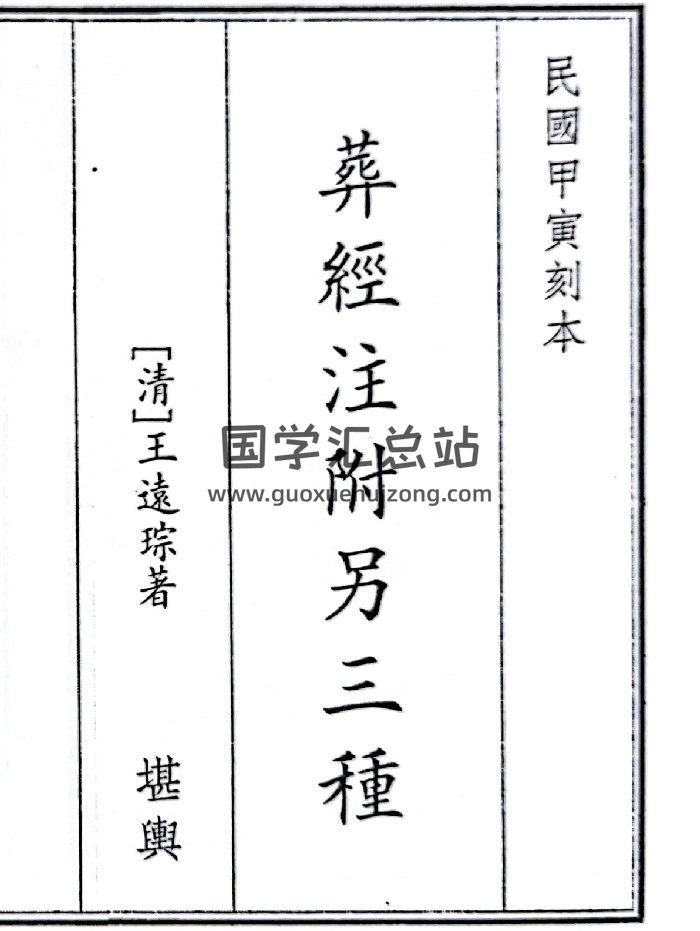 民國甲寅刻本
葬經注附另三種
[清]王遠琮著
堪輿
国学汇总站
www.guoxuehuizong.com